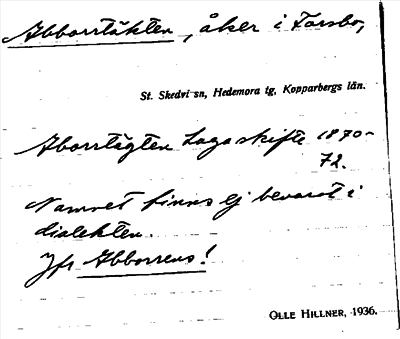 Abborrtäkten, åker i Forsbo,
St. Skedvi sn, Hedemora tg, Kopparbergs län.
Aborrtägten Lagaskifte 1870-
72.
Namnet finns ej bevarat i
dialekten.
Jfr Abborrens!
OLLE HILLNER, 1936.